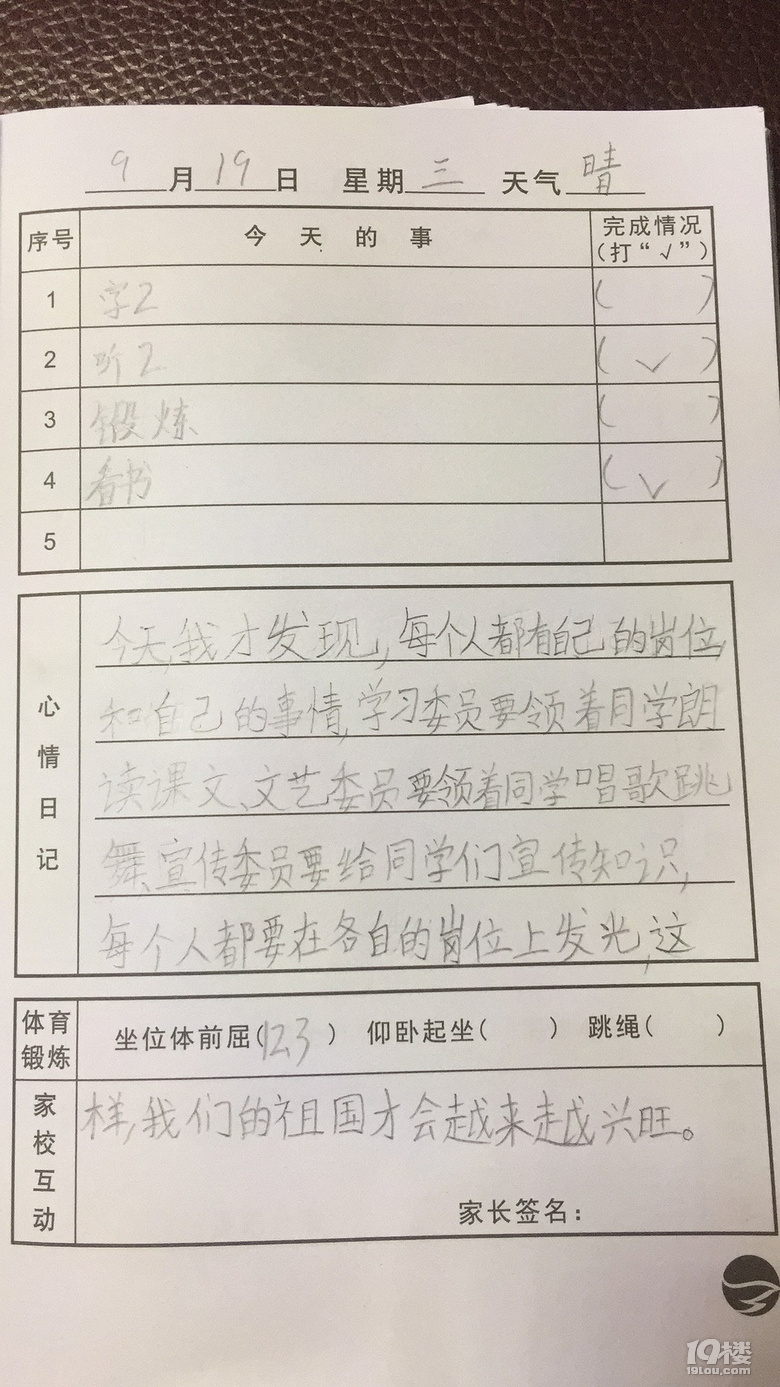 9月19日 星期三 天气晴
序号 今天的事 完成情况(打“√”)
1 字2 ( )
2 听2 (√)
3 锻炼 ( )
4 看书 (√)
5
心情日记
今天,我才发现,每个人都有自己的岗位,
和自己的事情,学习委员要领着同学朗
读课文、文艺委员要领着同学唱歌跳
舞、宣传委员要给同学们宣传知识,
每个人都要在各自的岗位上发光,这
体育锻炼 坐位体前屈(12.3) 仰卧起坐( ) 跳绳( )
家校互动
样,我们的祖国才会越来越兴旺。
家长签名:
19楼
19lou.com